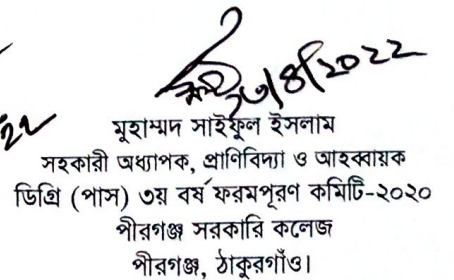 মুহাম্মদ সাইফুল ইসলাম
সহকারী অধ্যাপক, প্রাণিবিদ্যা ও আহবায়ক
ডিগ্রি (পাস) ৩য় বর্ষ ফরমপূরণ কমিটি-২০২০
পীরগঞ্জ সরকারি কলেজ
পীরগঞ্জ, ঠাকুরগাঁও।